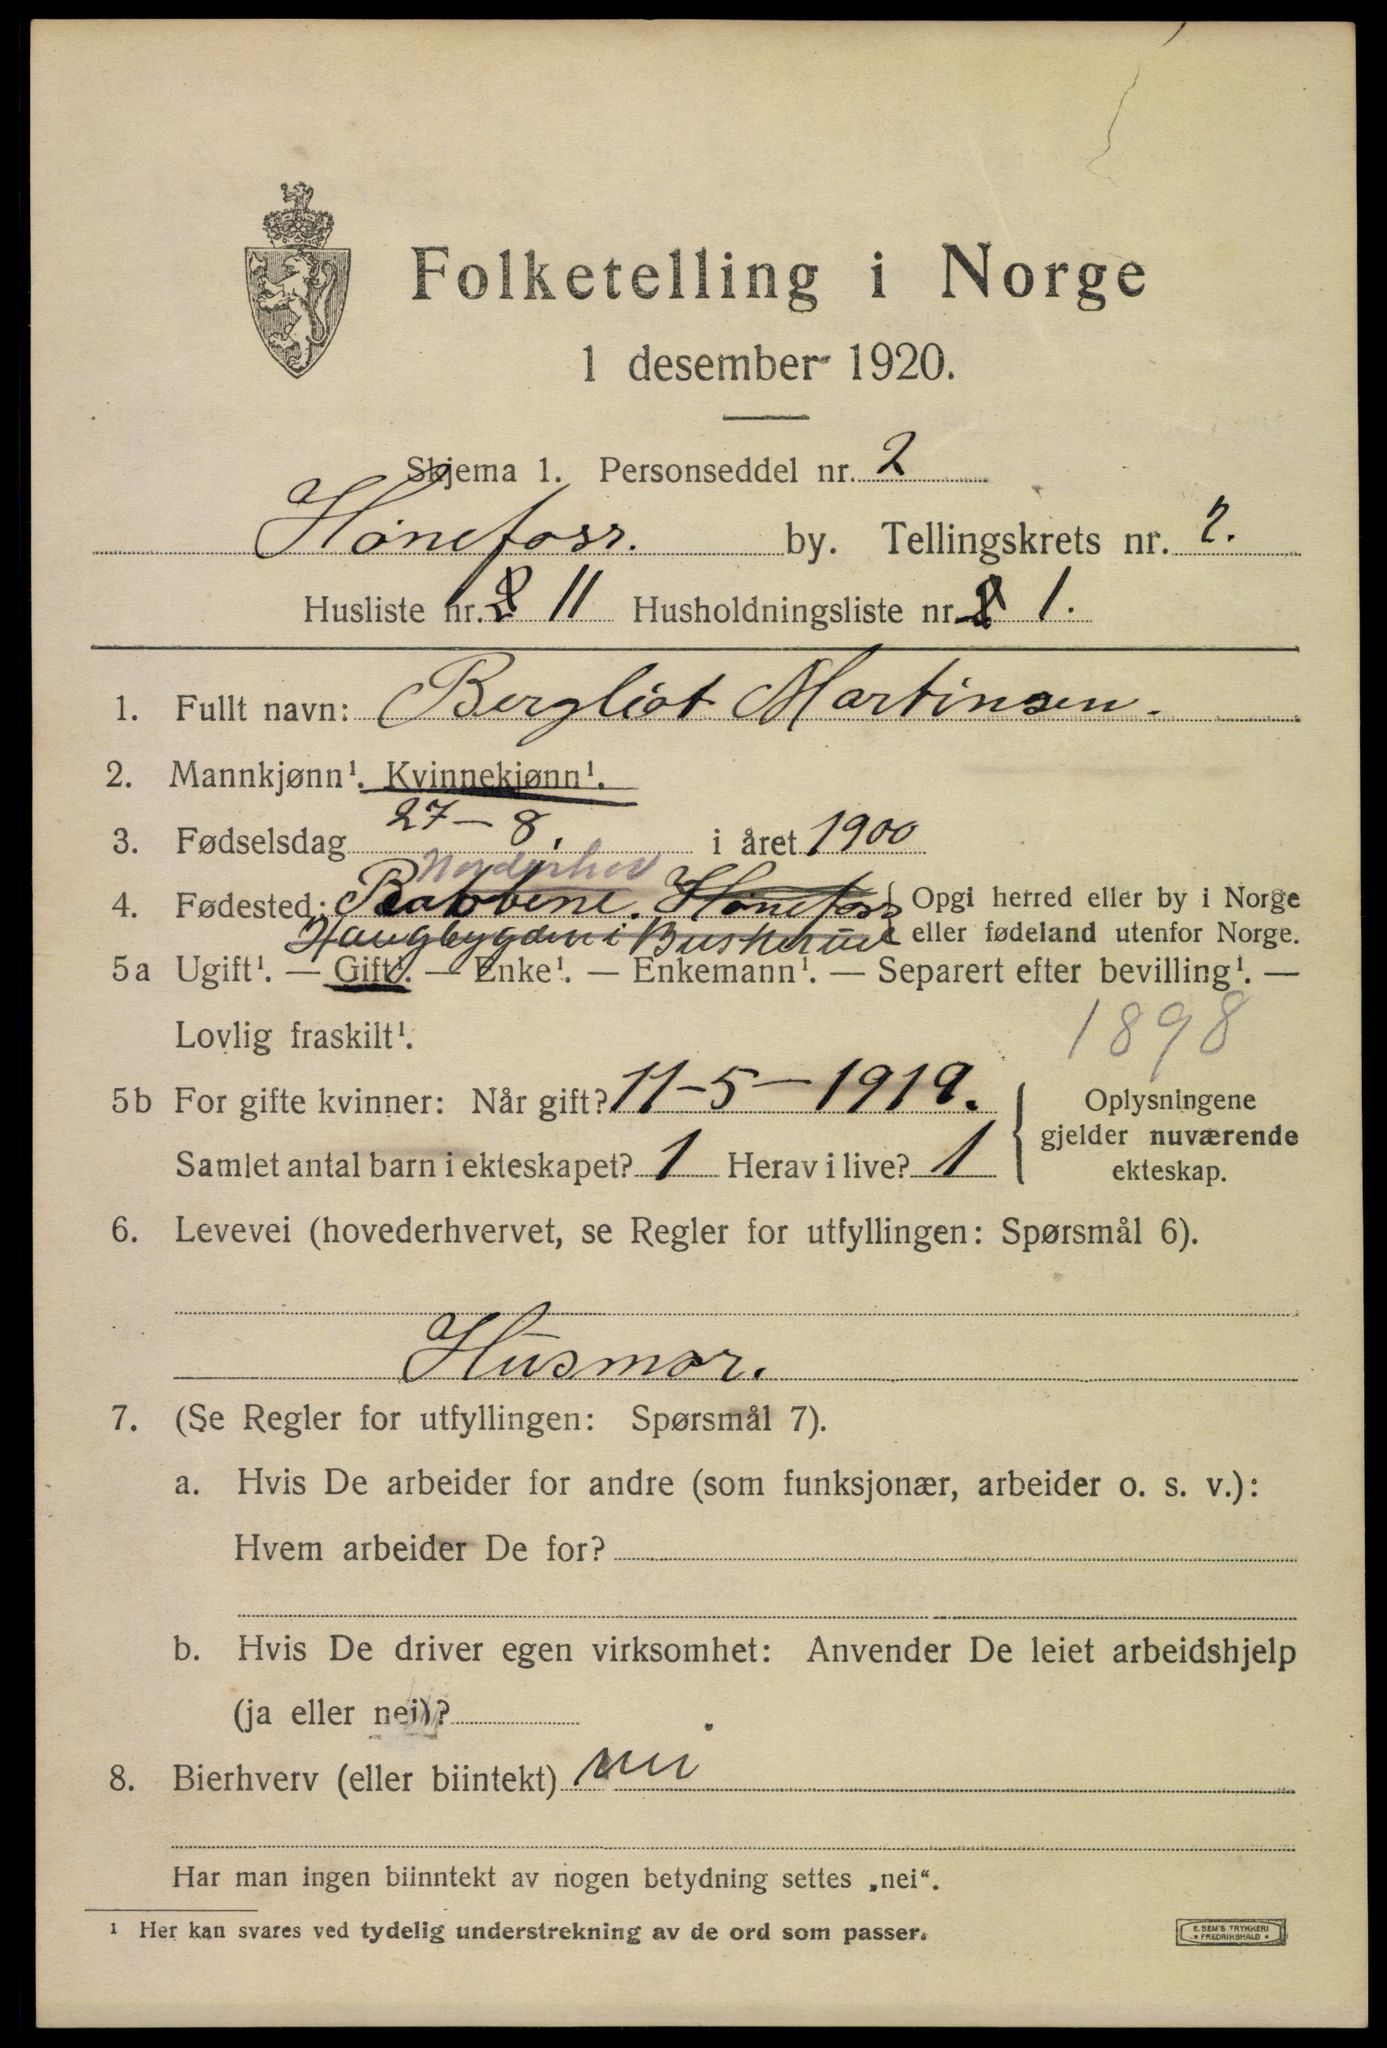 Folketelling i Norge
1 desember 1920.
Skjema 1. Personseddel nr. 2
Hönefoss. by. Tellingskrets nr. 2.
Husliste nr. 2 11 Husholdningsliste nr. 2 1.
1. Fullt navn: Bergliot Martinsen.
2. Mannkjønn¹. Kvinnekjønn¹.
3. Fødselsdag 27–8. i året 1900
Norderhov
4. Fødested: Hönefoss { Opgi herred eller by i Norge
Haugbygden i Buskerud eller fødeland utenfor Norge.
5a Ugift¹. — Gift¹. — Enke¹. — Enkemann¹. — Separert efter bevilling¹. —
Lovlig fraskilt¹. 1898
5b For gifte kvinner: Når gift? 11–5–1919. { Oplysningene
gjelder nuværende
Samlet antal barn i ekteskapet? 1 Herav i live? 1 ekteskap.
6. Levevei (hovederhvervet, se Regler for utfyllingen: Spørsmål 6).
Husmor.
7. (Se Regler for utfyllingen: Spørsmål 7).
a. Hvis De arbeider for andre (som funksjonær, arbeider o. s. v.):
Hvem arbeider De for?
b. Hvis De driver egen virksomhet: Anvender De leiet arbeidshjelp
(ja eller nei)?
8. Bierhverv (eller biintekt) nei
Har man ingen biinntekt av nogen betydning settes „nei“.
¹ Her kan svares ved tydelig understrekning av de ord som passer.
E. SEM'S TRYKKERI
* FREDRIKSHALD *